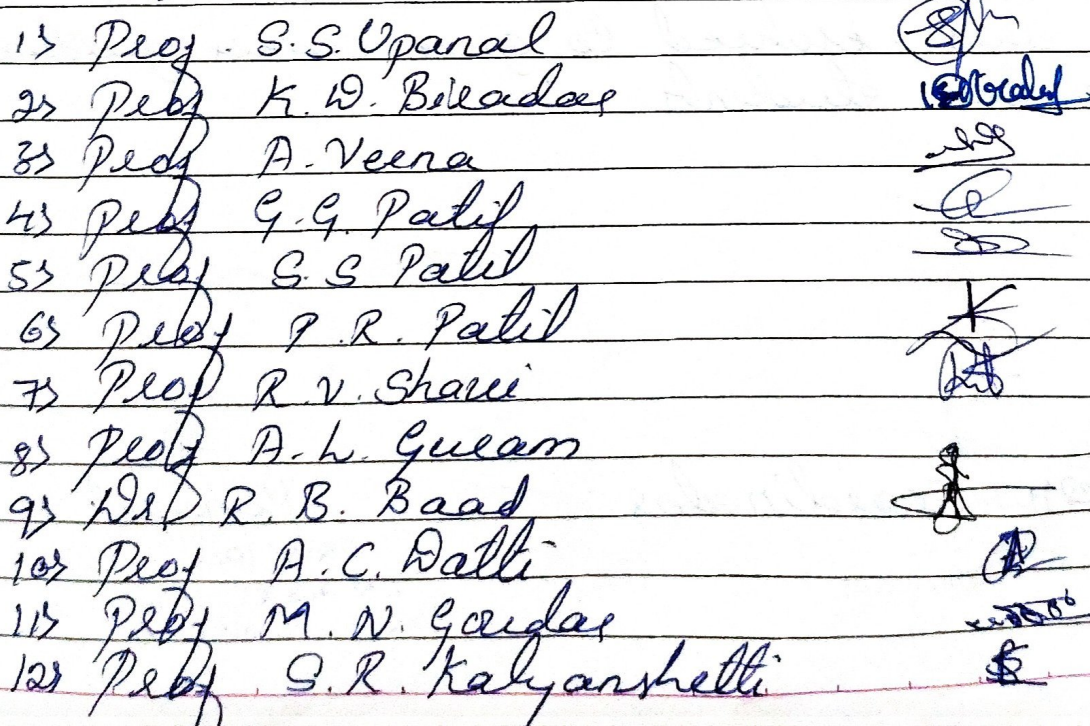 1) Prof. S.S. Upanal
2) Prof K.D. Biradar
3) Prof A. Veena
4) Prof G.G. Patil
5) Prof S.S Patil
6) Prof P.R. Patil
7) Prof R.V. Shavi
8) Prof A.L. Guram
9) Dr R.B. Baad
10) Prof A.C. Datti
11) Prof M.N. Goudar
12) Prof S.R. Kalyanshetti